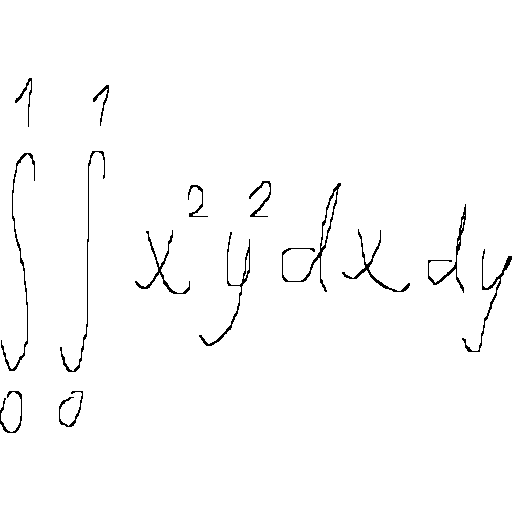 \int_0^1 \int_0^1 x^2 y^2 dx dy